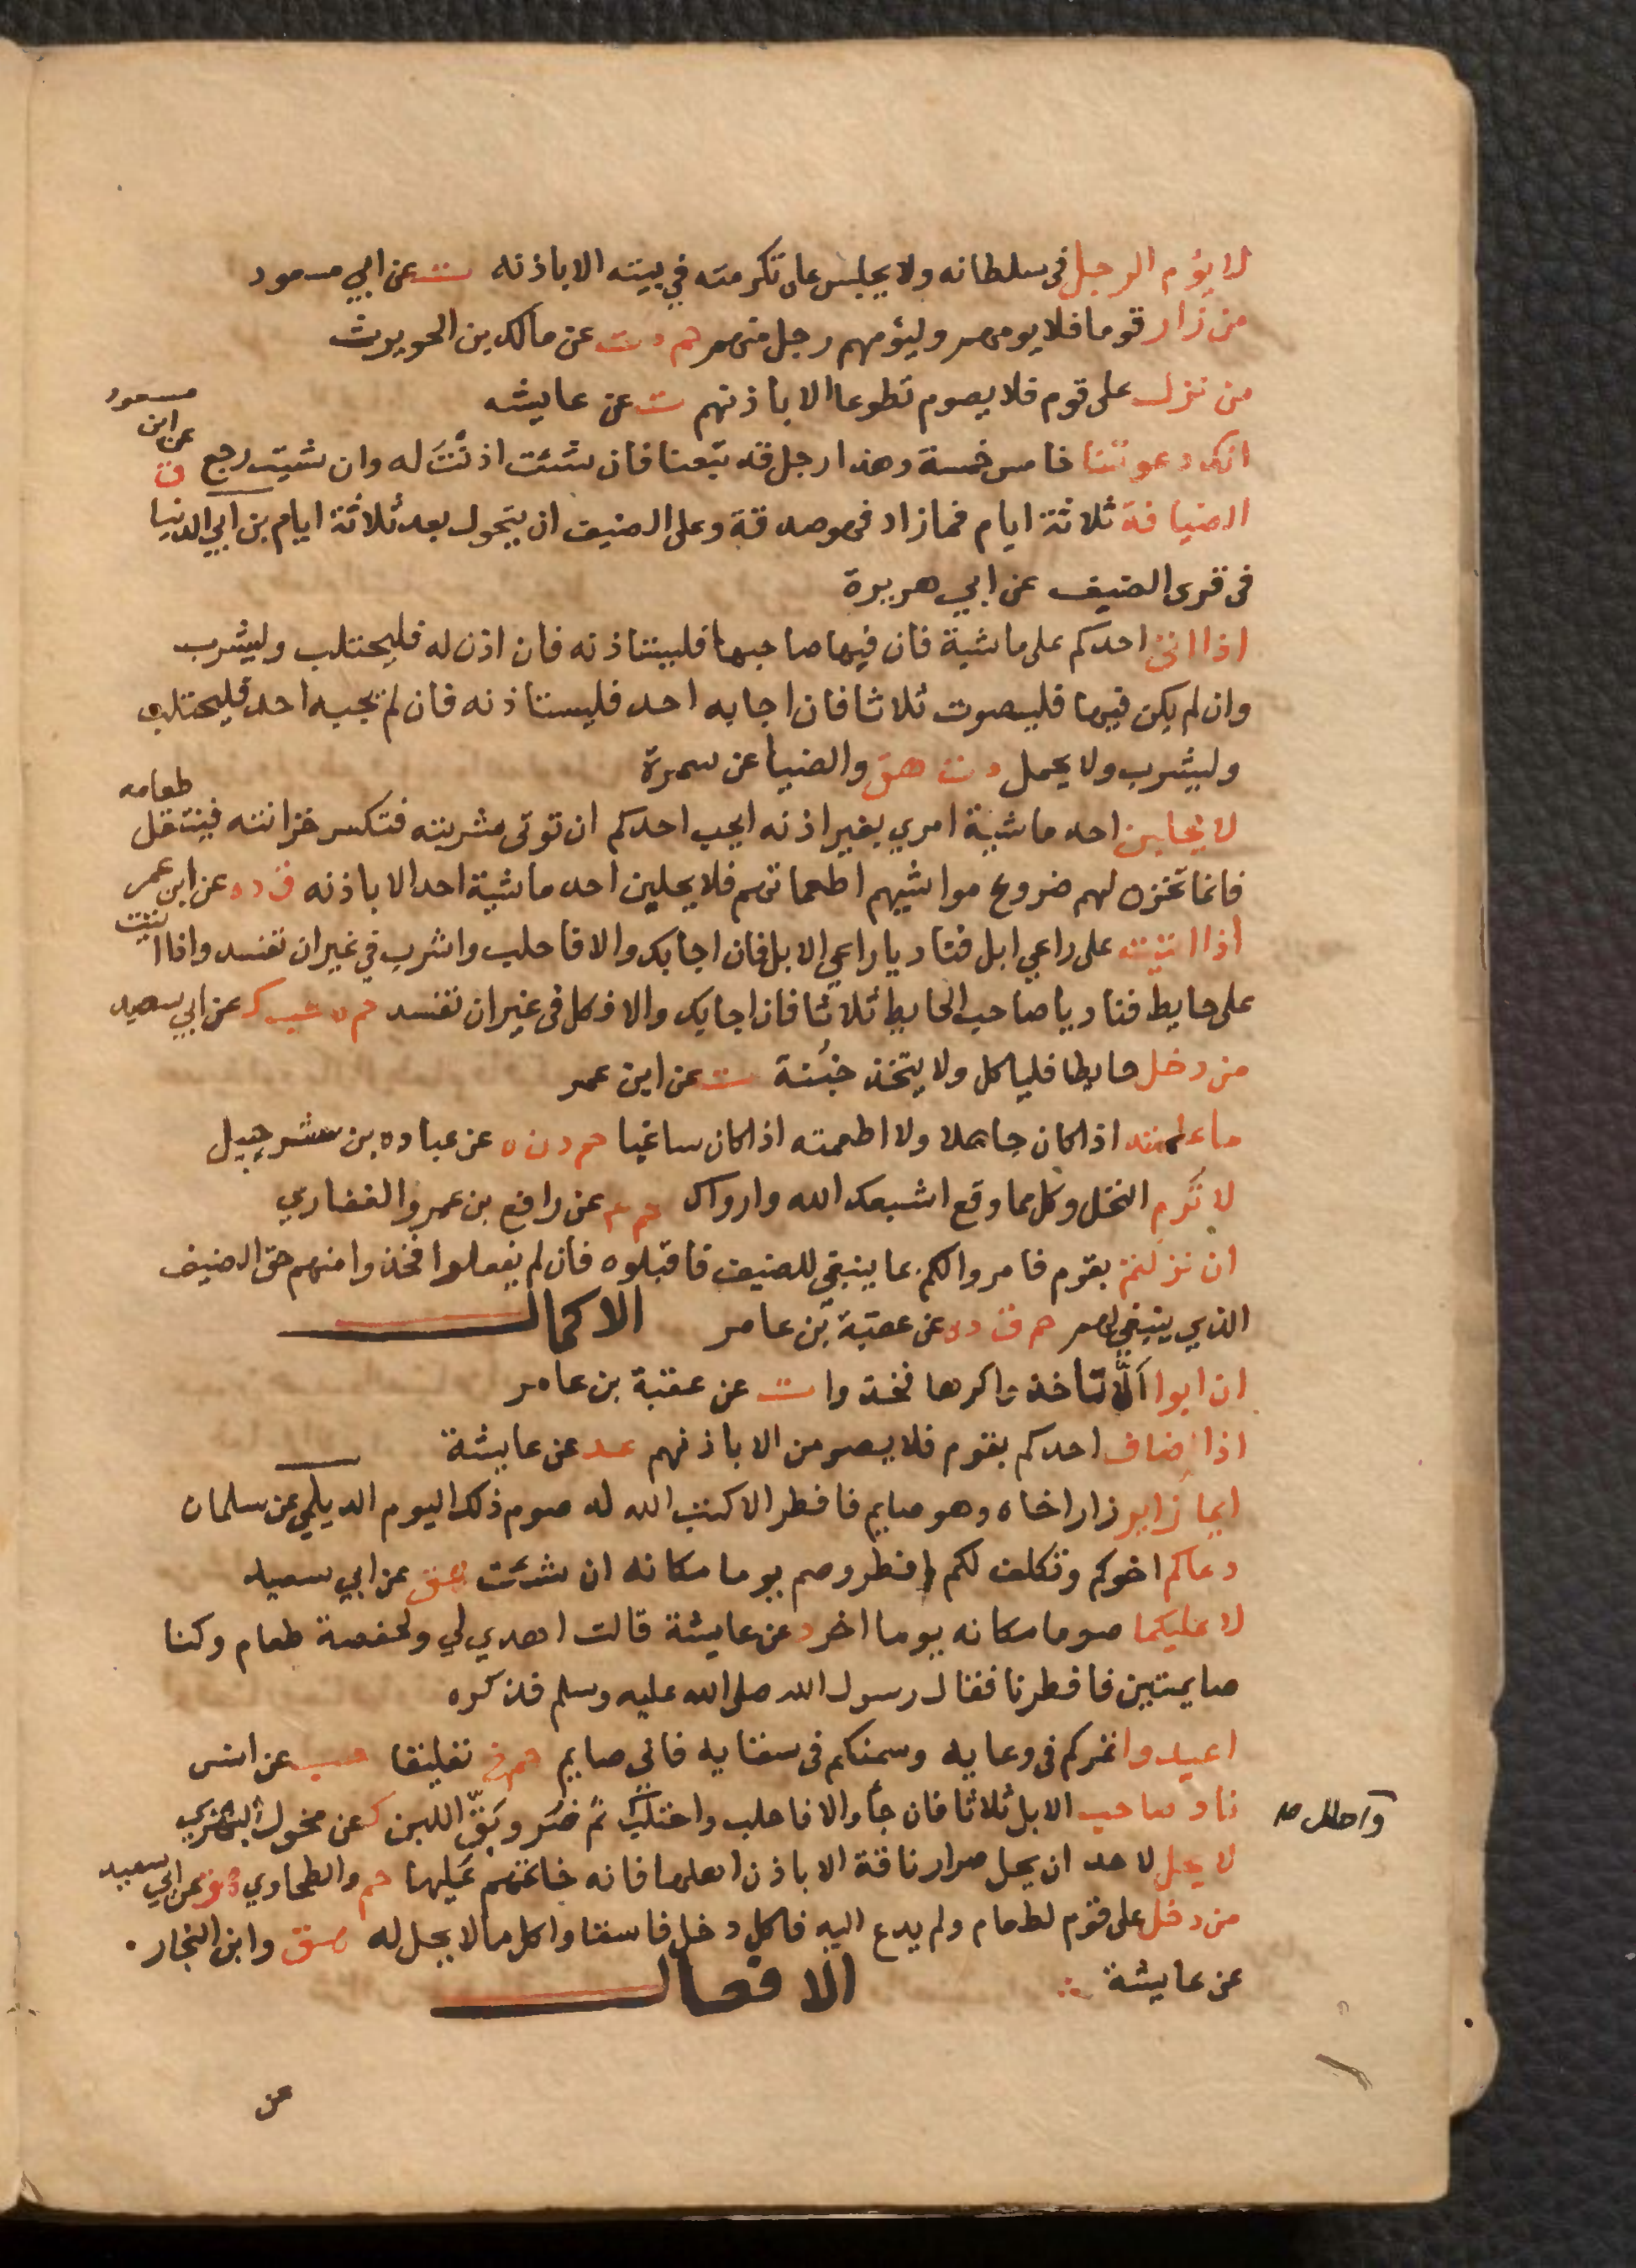 لا يؤم الرجل في سلطانه ولا يجلس على تكرمته في بيته الا باذنه ت عن ابي مسعود
من زار قوما فلا يومهم وليؤمهم رجل منهم حم د ت عن مالك بن الحويرث
من نزل على قوم فلا يصوم تطوعا الا باذنهم ت عن عايشه
انك دعوتنا خامس خمسة وهذا رجل قد تبعنا فان شئت اذنت له وان شيت رجع ق عن ابن مسعود
الضيافة ثلاثة ايام فما زاد فهو صدقة وعلى الضيف ان يتحول بعد ثلاثة ايام بن ابي الدنيا
في قرى الضيف عن ابي هريرة
اذا اتى احدكم على ماشية فان فيها صاحبها فليستاذنه فان اذن له فليحتلب وليشرب
وان لم يكن فيها فليصوت ثلاثا فان اجابه احد فليستاذنه فان لم يجبه احد فليحتلب
وليشرب ولا يحمل د ت هق والضيا عن سمرة
لا يحلبن احد ماشية امري بغير اذنه ايحب احدكم ان توتى مشربته فتكسر خزانته فينتقل طعامه
فانما تخزن لهم ضروع مواشيهم اطعماتهم فلا يحلبن احد ماشية احد الا باذنه ق د ه عن ابن عمر
اذا اتيت على راعي ابل فناد يا راعي الابل فان اجابك والا فاحلب واشرب في غير ان تفسد واذا اتيت
على حايط فناد يا صاحب الحايط ثلاثا فان اجابك والا فكل في غير ان تفسد حم ه حب ك عن ابي سعيد
من دخل حايطا فلياكل ولا يتخذ خبنة ت عن ابن عمر
ما علمته اذ كان جاهلا ولا اطعمته اذ كان ساغبا حم د ن ه عن عباده بن شرحبيل
لا ترم النخل وكل مما وقع اشبعك الله وارواك حم م عن رافع بن عمرو الغفاري
ان نزلتم بقوم فامروا لكم بما ينبغي للضيف فاقبلوه فان لم يفعلوا فخذوا منهم حق الضيف
الذي ينبغي لهم حم ق د ه عن عقبة بن عامر الاكمال
ان ابوا الا تاخذوا كرها فخذوا ت عن عقبة بن عامر
اذا ضاف احدكم بقوم فلا يصومن الا باذنهم عد عن عايشة
ايما زاير زار اخاه وهو صايم فافطر الا كتب الله له صوم ذلك اليوم الديلمي عن سلمان
دعاكم اخوكم وتكلف لكم افطر وصم يوما مكانه ان شئت هق عن ابي سعيد
لا عليكما صوما مكانه يوما اخر د عن عايشة قالت اهدي لي ولحفصة طعام وكنا
صايمتين فافطرنا فقال رسول الله صلى الله عليه وسلم فذكره
اعيدوا تمركم في وعايه وسمنكم في سقايه فاني صايم حم خ تعليقا حب عن انس
ناد صاحب الابل ثلاثا فان جأ والا فاحلب واحتلب ثم صر وبق اللبن ك عن مخول البهزي
واحلل ص
لا يحل لاحد ان يحل صرار ناقة الا باذن اهلها فانه خاتمهم عليها حم والطحاوي هق عن ابي سعيد
من دخل على قوم لطعام ولم يدع اليه فاكل دخل فاسقا واكل ما لا يحل له هق وابن النجار
عن عايشة الافعال
عن